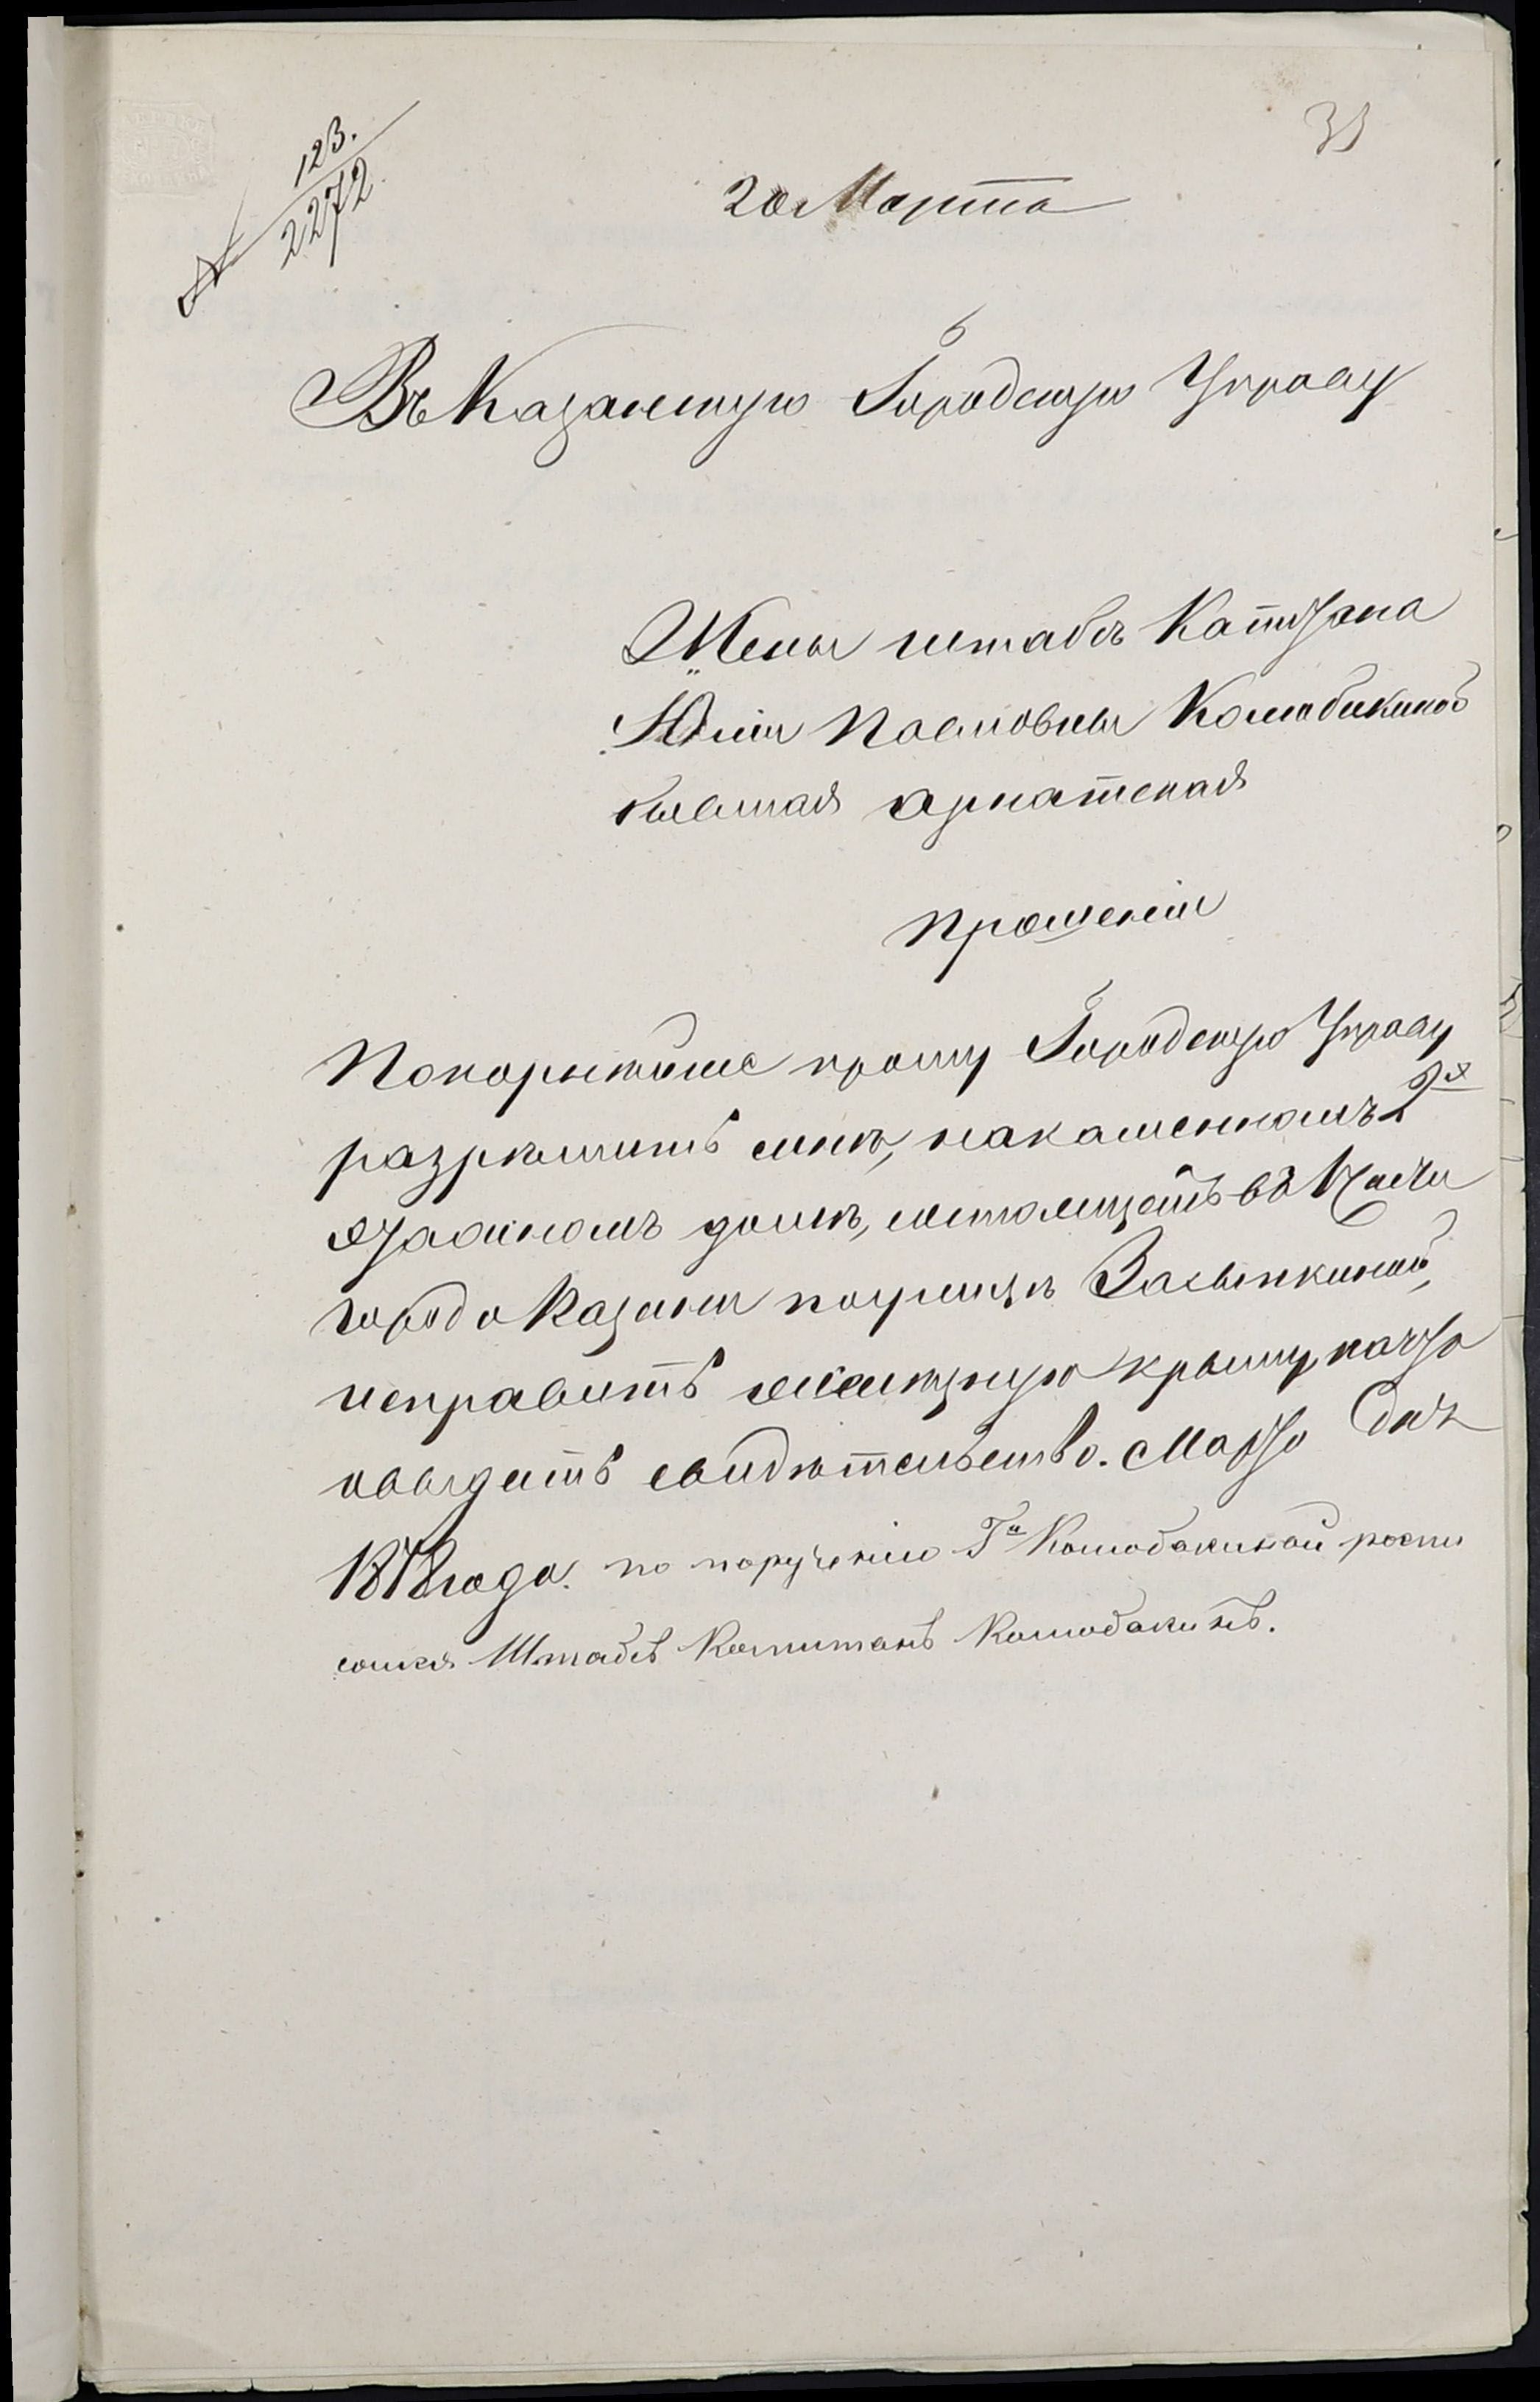 31
№ 123.
2272
20 Марта
Въ Казанскую Городскую Управу
Жены штабсъ Капитана
Юліи Павловны Коломбакиной
бывшая
прошеніе
Покорнѣйше прошу Городскую Управу
разрѣшить мнѣ, на каменномъ 2х
этажномъ домѣ, состоящемъ въ 1 Части
города Казани по улицѣ Засыпкиной,
исправить желѣзную крышу, на что
и выдать свидѣтельство. Марта дня
1878 года. по порученію Гжи росписался
Штабсъ Капитанъ